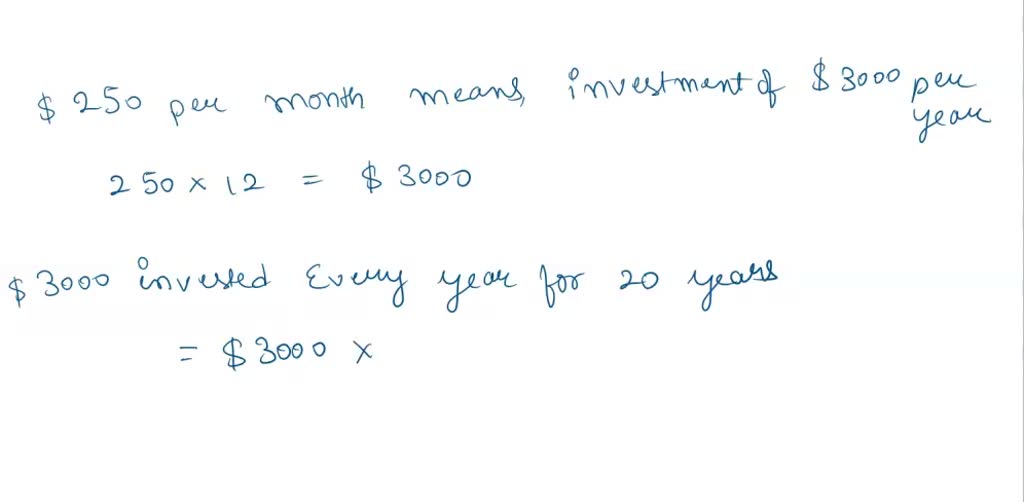 $ 250 per month means, investment of $ 3000 per
year
250 × 12 = $ 3000
$ 3000 invested Every year for 20 years
= $ 3000 ×